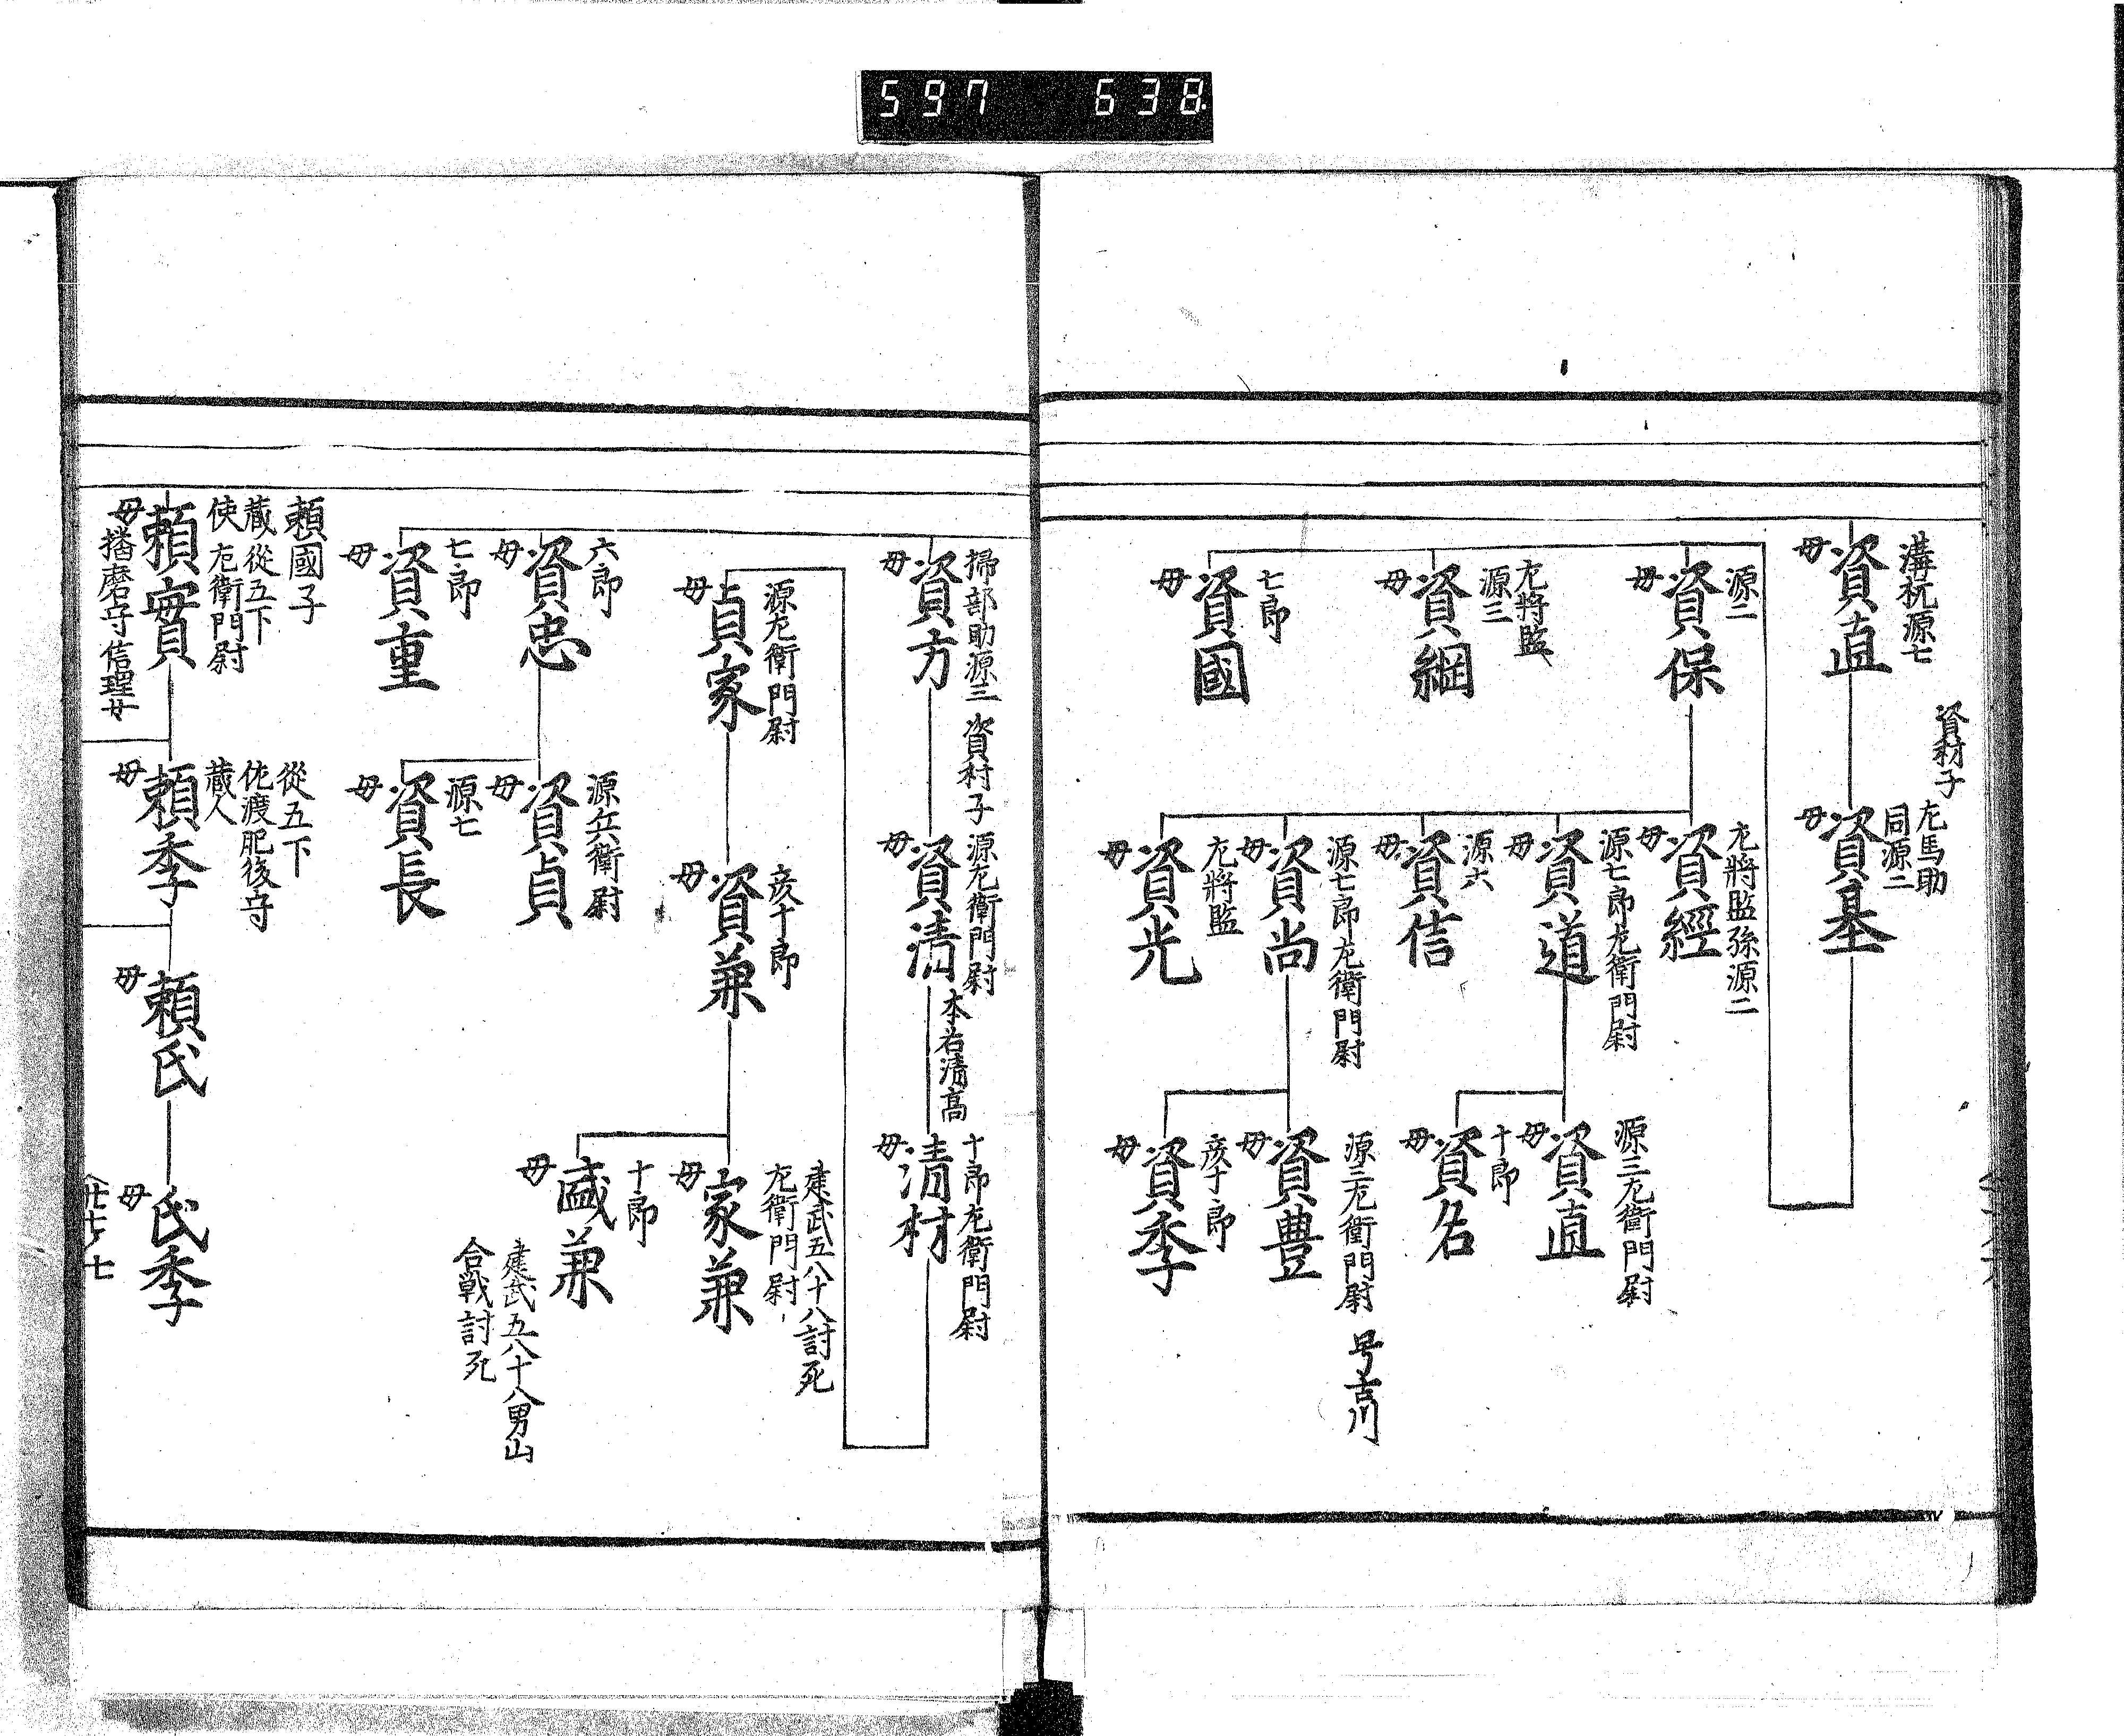 597 638
溝杭源七
資直
母
資材子
左馬助
同源二
資基
母
源二
資保
母
左将監孫源二
資經
母
左将監
源三
資綱
母
七郎
資國
母
源七郎左衛門尉
資道
母
源三左衛門尉
資直
母
十郎
資名
母
源六
資信
母
源七郎左衛門尉
資尚
母
源三左衛門尉
号吉川
資豊
母
彦十郎
資季
母
左将監
資光
母
掃部助源三
資方
母
資村子
源左衛門尉
資清
母
本名清高
十郎左衛門尉
清材
母
源左衛門尉
貞家
母
彦十郎
資兼
母
建武五八十八討死
左衛門尉
家兼
母
十郎
盛兼
母
建武五八十八男山
合戦討死
六郎
資忠
母
源兵衛尉
資貞
母
七郎
資重
母
源七
資長
母
頼國子
蔵從五下
使左衛門尉
頼實
母播磨守信理女
從五下
佐渡肥後守
蔵人
頼季
母
頼氏
母
氏季
母